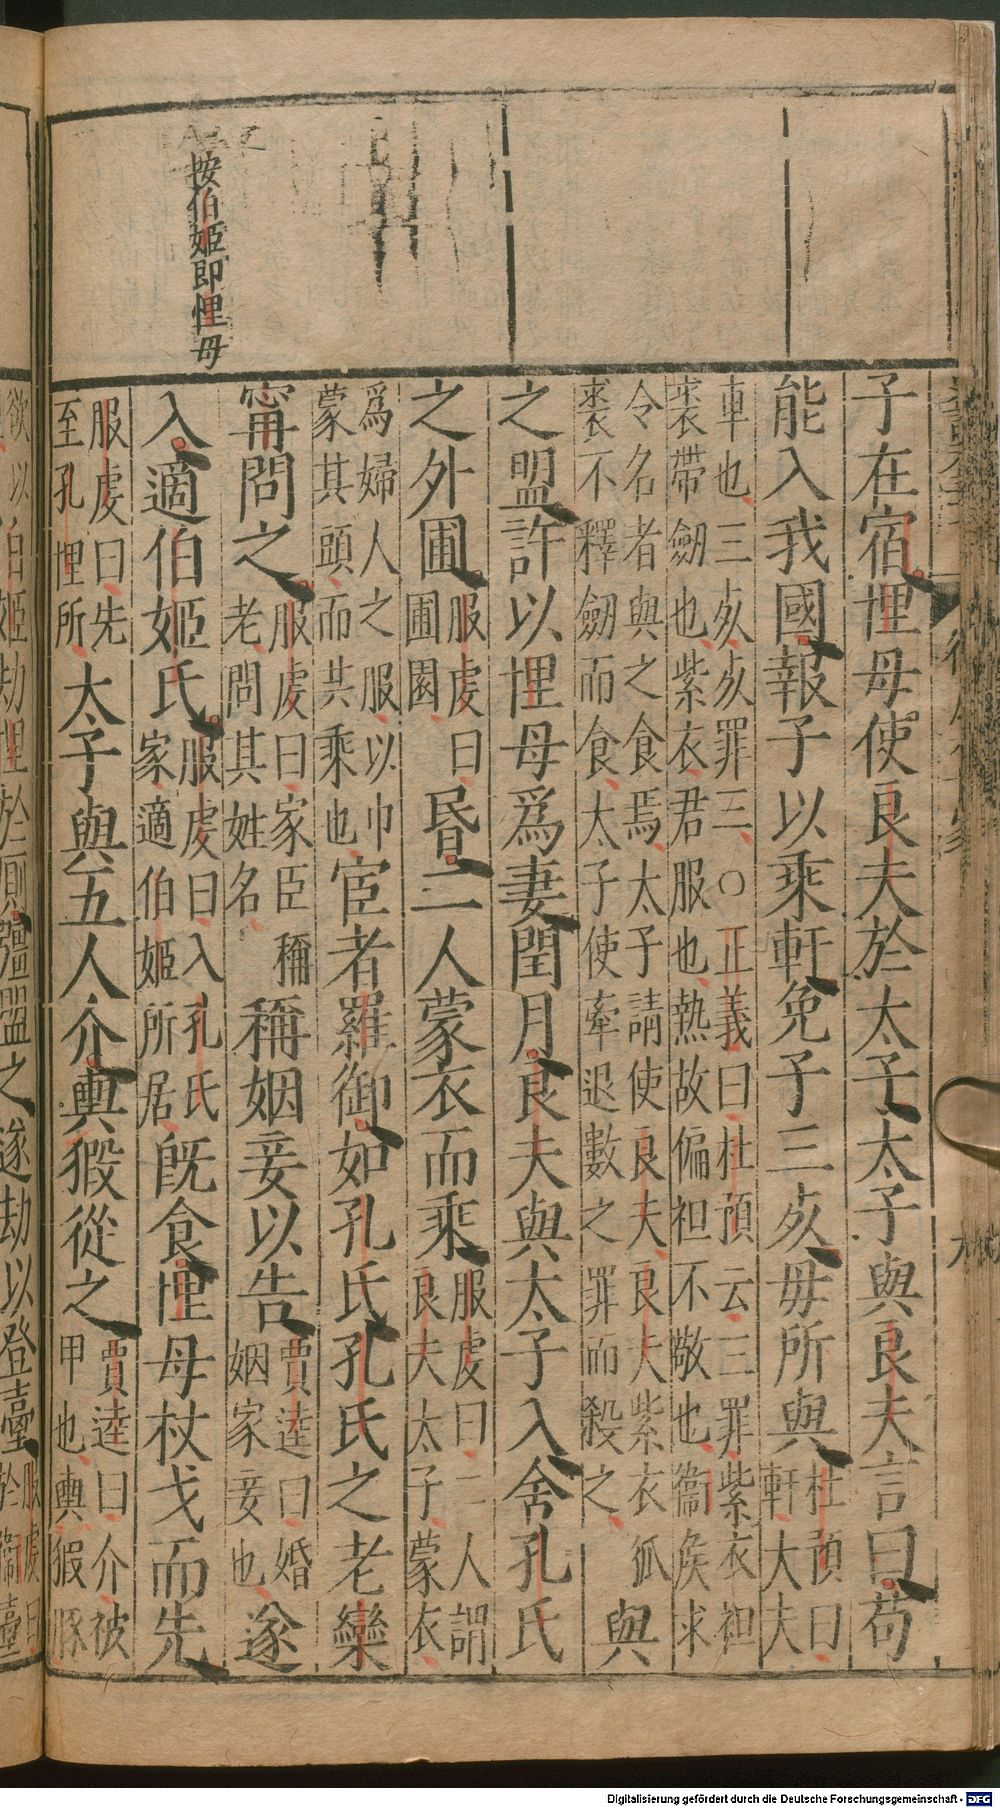 按伯姬即悝母
子在宿悝母使良夫於太子太子與良夫言曰苟
能入我國報子以乘軒免子三死毋所與
杜預曰
軒大夫
車也三死死罪三○正義曰杜預云三罪紫衣袒
裘帶劒也紫衣君服也熱故偏袒不敬也衞侯求
令名者與之食焉太子請使良夫良夫紫衣狐
裘不釋劒而食太子使牽退數之罪而殺之
與
之盟許以悝母爲妻閏月良夫與太子入舍孔氏
之外圃
服虔曰
圃園
昬二人蒙衣而乘
服虔曰二人謂
良夫太子蒙衣
爲婦人之服以巾
蒙其頭而共乘也
宦者羅御如孔氏孔氏之老欒
甯問之
服虔曰家臣稱
老問其姓名
稱姻妾以告
賈逵曰婚
姻家妾也
遂
入適伯姬氏
服虔曰入孔氏
家適伯姬所居
旣食悝母杖戈而先
服虔曰先
至孔悝所
太子與五人介輿猳從之
賈逵曰介被
甲也輿猳豚
欲以伯姬劫悝於厠彊盟之遂劫以登臺
服虔曰
於衞臺
Digitalisierung gefördert durch die Deutsche Forschungsgemeinschaft - DFG